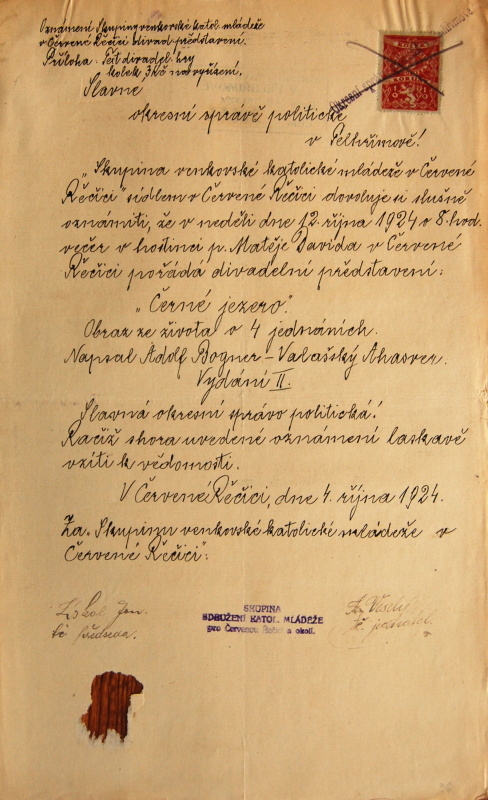 Oznámení Skupiny venkovské katol. mládeže
v Červené Řečici divad. představení.
Příloha: Text divadel. hry
kolek 3 Kč na vyřízení.
KOLEK
1 KORUNA 1
1919
Slavné
okresní správě politické
v Pelhřimově!
„Skupina venkovské katolické mládeže v Červené
Řečici" sídlem v Červené Řečici dovoluje si slušně
oznámiti, že v neděli dne 12. října 1924 o 8. hod.
večer v hostinci p. Matěje Davida v Červené
Řečici pořádá divadelní představení:
„Černé jezero".
Obraz ze života o 4 jednáních.
Napsal Adolf Bogner – Valašský Ahasver.
Vydání II.
Slavná okresní správo politická!
Račiž shora uvedené oznámení laskavě
vzíti k vědomosti.
V Červené Řečici, dne 4. října 1924.
Za „Skupinu venkovské katolické mládeže v
Červené Řečici":
Jan.
t. č. předseda.
SKUPINA
SDRUŽENÍ KATOL. MLÁDEŽE
pro Červenou Řečici a okolí.
Veselý
t. č. jednatel.